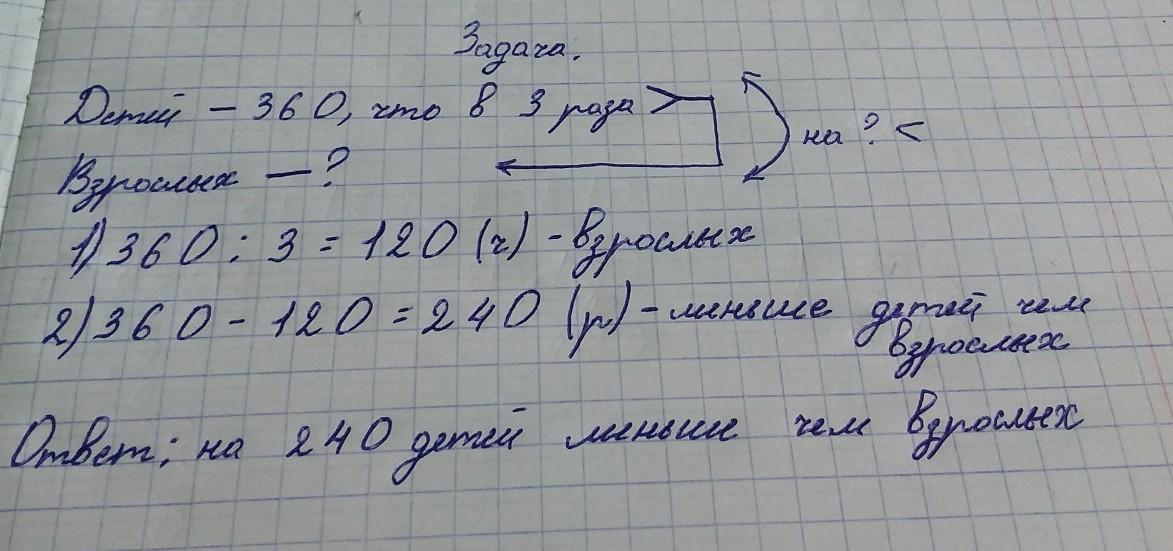 Задача.
Детей - 360, что в 3 раза >
на ? <
Взрослых - ?
1) 360 : 3 = 120 (ч) - взрослых
2) 360 - 120 = 240 (р) - меньше детей чем
взрослых
Ответ: на 240 детей меньше чем взрослых